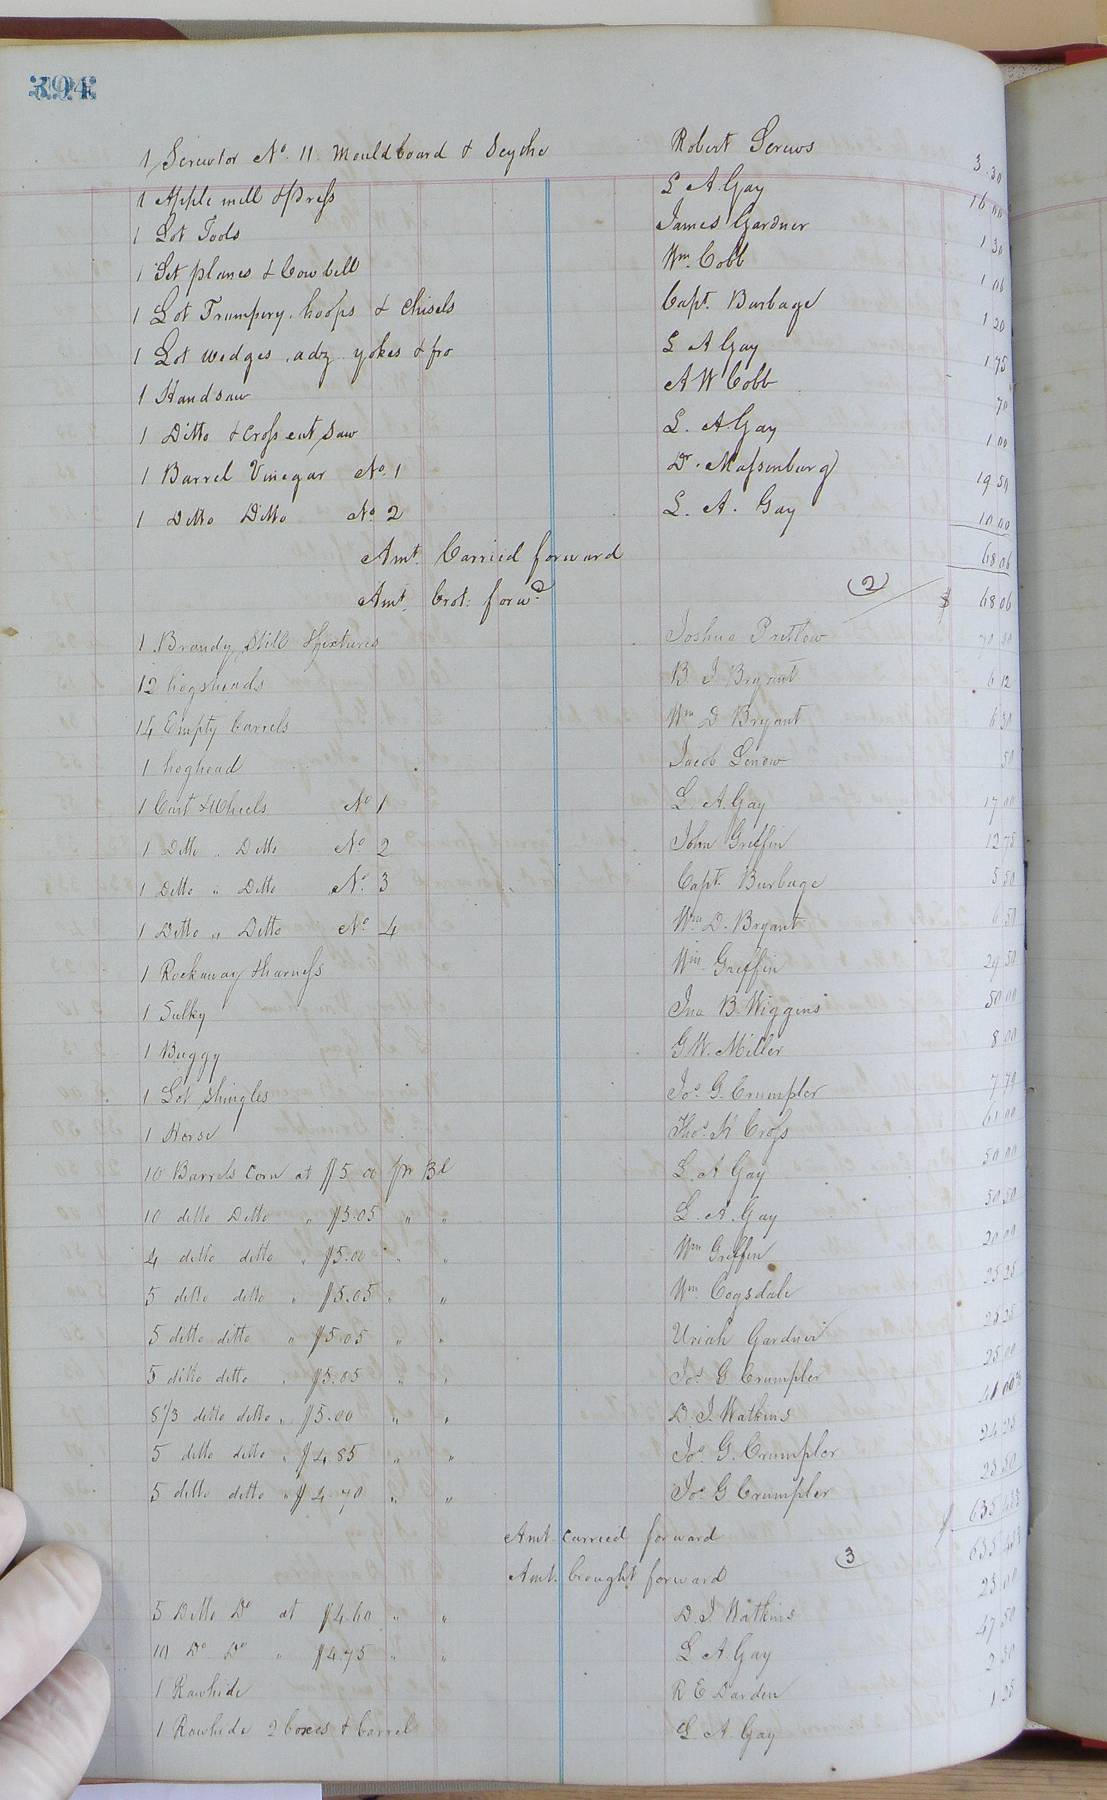 394
1 Screwtor No. 11 Mouldboard & Scythe Robert Screws 3 30
1 Apple mill & Press L A. Gay 16 00
1 Lot Tools James Gardner 1 30
1 Set planes & Cowbell Wm. Cobb 1 06
1 Lot Trumpery, hoops & Chisels Capt. Burbage 1 20
1 Lot wedges, adz yokes & fro L A Gay 1 75
1 Handsaw A W Cobb 70
1 Ditto & Cross cut Saw L. A. Gay 1 00
1 Barrel Vinegar No. 1 Dr. Massenburg 19 50
1 Ditto Ditto No. 2 L. A. Gay 10 00
Amt. Carried forward 68 06
Amt. brot. forwd. (2) $ 68 06
1 Brandy Still & fixtures Joshua Pretlow
12 hogsheads B. J Bryant 6 12
14 Empty barrels Wm D Bryant 6 30
1 hoghead Jacob Lenow 50
1 Cart & Wheels No 1 L. A. Gay 17 00
1 Ditto " Ditto No 2 John Griffin 12 75
1 Ditto " Ditto No. 3 Capt. Burbage 5 50
1 Ditto " Ditto No. 4 Wm D. Bryant 6 50
1 Rockaway & harness Wm. Griffin 29 50
1 Sulky Jno B. Wiggins 50 00
1 Buggy G W. Miller 8 00
1 Lot Shingles Jos. G. Crumpler 7 79
1 Horse Thos. K Cross 61 00
10 Barrels Corn at $5 00 pr Bl L. A Gay 50 00
10 ditto Ditto " $5.05 " " L. A. Gay 50 50
4 ditto ditto " $5.00 " " Wm Griffin 20 00
5 ditto ditto " $5.05 " " Wm. Cogsdale 25 25
5 ditto ditto " $5.05 " " Uriah Gardner 25 25
5 ditto ditto " $5.05 " " Jos. G Crumpler 25 00
8 1/3 ditto ditto " $5.00 " " D. J. Watkins 41 00
5 ditto ditto " $4.85 " " Jos. G. Crumpler 24 25
5 ditto ditto " $4.70 " " Jos. G Crumpler 23 50
Amt. carried forward $ 635
Amt. brought forward (3) 635
5 Ditto Do at $4.60 " " D. J Watkins 23 00
10 Do Do " $4.75 " " L A. Gay 47 50
1 Rawhide R E Darden 2 50
1 Rawhide 2 boxes & barrel L. A Gay 1 25